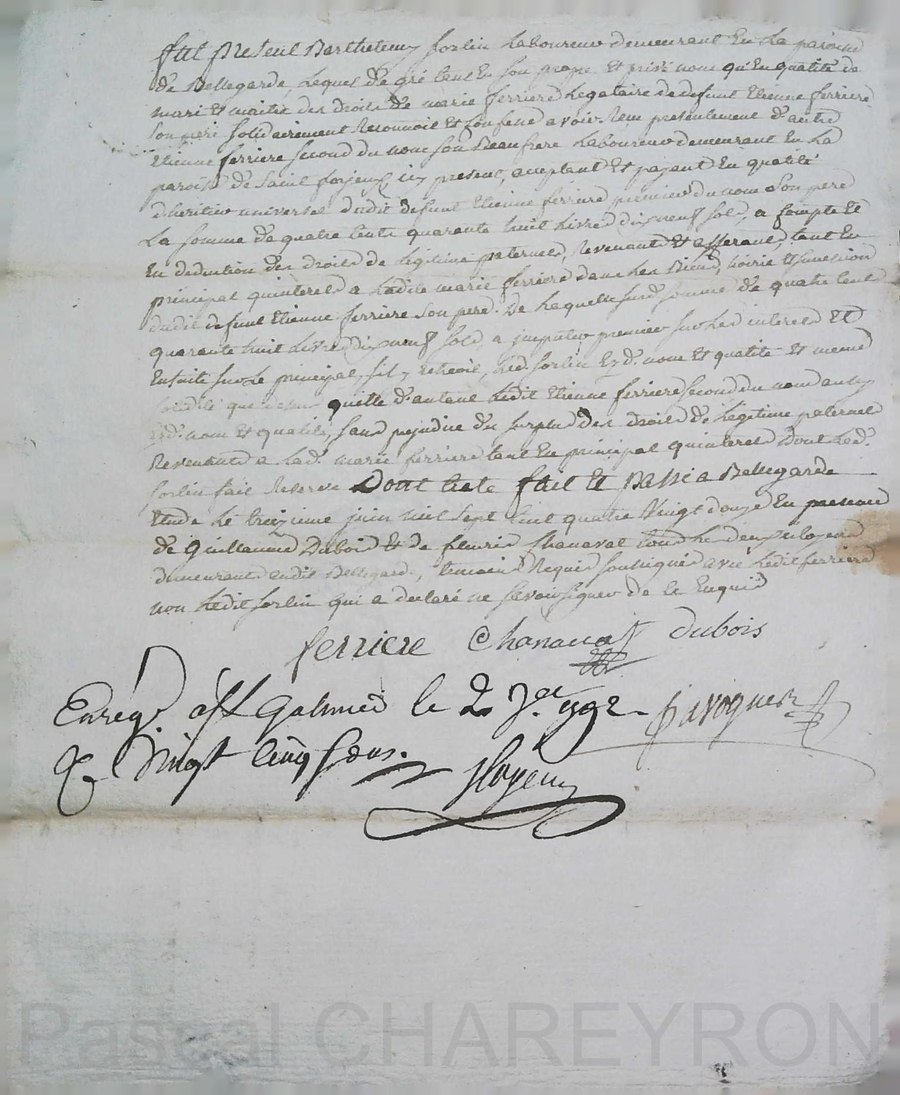 fut present Barthelemy forlin Laboureur demeurant En La paroisse
de Bellegarde, Lequel de gré tant En son propre Et privé nom qu'En qualité de
mari Et maitre des droits de marie ferriere Legataire de defunt Etienne ferriere
son pere solidairement Reconnoit Et Confesse avoir Reçu presentement d'autre
Etienne ferriere second du nom son Beaufrere Laboureur demeurant En La
paroisse de Saint forjeux icy present, acceptant Et payant En qualité
d'heritier universel dudit defunt Etienne ferriere premier du nom son pere
La somme de quatre Cents quarante huit Livres dix neuf sols, a Compte Et
En deduction des droits de Legitime paternels, Revenant Et afferants, tant En
principal qu'interets a Ladite marie ferriere dans Les Biens, hoirie Et succession
dudit defunt Etienne ferriere son pere. De Laquelle susd. somme de quatre Cents
quarante huit Livres dix neuf sols, a imputer premier sur Les interets Et
Ensuite sur Le principal, sil y Echeoit, Led. forlin Esd. nom Et qualité Et meme
solidité que dessus quitte d'autant Ledit Etienne ferriere second du nom aussy
Esd. nom Et qualité, sans prejudice du surplus des droits de Legitime paternels
Revenants a Lad. marie ferriere tant En principal qu'interets dont Led.
forlin fait Reserve Dont acte fait Et passé a Bellegarde
Etude Le treizieme juin mil sept Cent quatre Vingt douze En presence
de Guillaume Dubois Et de fleurie Chanavat tous Les deux Citoyens
demeurants audit Bellegarde, temoins Requis soussignés avec Ledit ferriere
non Ledit forlin qui a declaré ne savoir signer de ce Enquis
ferriere Chanavat dubois
Enregé. a St Galmier le 2 Jet. 1792
R. Vingt Cinq sous.
Pascal CHAREYRON